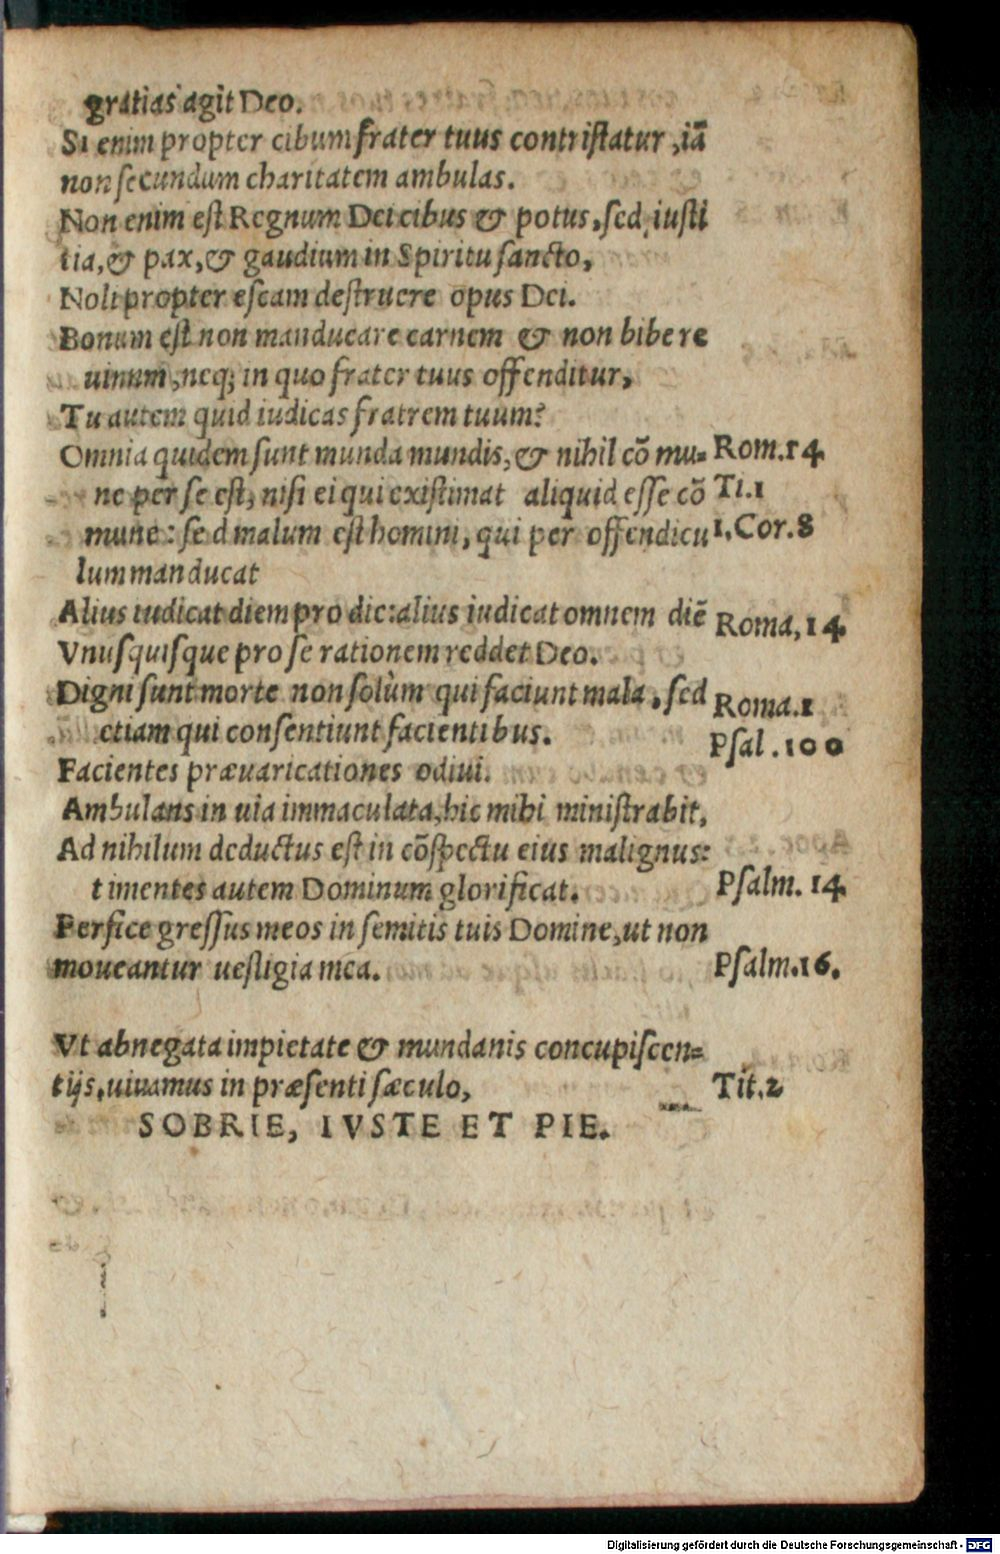 gratias agit Deo.
Si enim propter cibum frater tuus contristatur, iā
non secundum charitatem ambulas.
Non enim est Regnum Dei cibus & potus, sed iusti
tia, & pax, & gaudium in Spiritu sancto,
Noli propter escam destruere opus Dei.
Bonum est non manducare carnem & non bibere
uinum, neq; in quo frater tuus offenditur,
Tu autem quid iudicas fratrem tuum?
Omnia quidem sunt munda mundis, & nihil cō mu= Rom.14
ne per se est, nisi ei qui existimat aliquid esse cō Ti.1
mune: sed malum est homini, qui per offendicu 1.Cor.8
lum manducat
Alius iudicat diem pro die: alius iudicat omnem diē Roma,14
Vnusquisque pro se rationem reddet Deo.
Digni sunt morte non solùm qui faciunt mala, sed Roma.1
etiam qui consentiunt facientibus. Psal.100
Facientes præuaricationes odiui.
Ambulans in uia immaculata, hic mihi ministrabit,
Ad nihilum deductus est in cōspectu eius malignus:
timentes autem Dominum glorificat. Psalm.14
Perfice gressus meos in semitis tuis Domine, ut non
moueantur uestigia mea. Psalm.16.
Vt abnegata impietate & mundanis concupiscen=
tijs, uiuamus in præsenti sæculo, Tit.2
SOBRIE, IVSTE ET PIE.
Digitalisierung gefördert durch die Deutsche Forschungsgemeinschaft - DFG